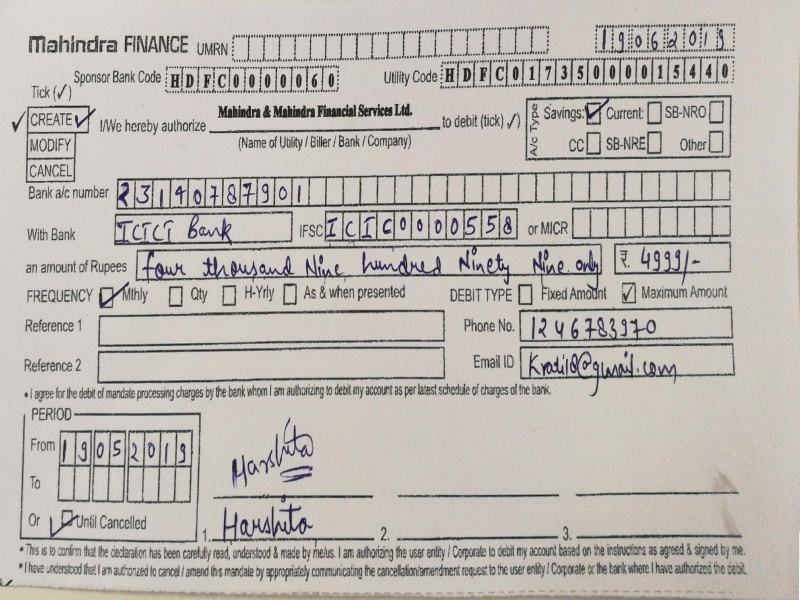 Mahindra FINANCE UMRN 19062019
Sponsor Bank Code HDFC0000060 Utility Code HDFC01735000015440
Tick (✓)
CREATE ✓ I/We hereby authorize Mahindra & Mahindra Financial Services Ltd. to debit (tick ✓) A/c Type Savings: ✓ Current: SB-NRO
MODIFY (Name of Utility / Biller / Bank / Company) CC SB-NRE Other
CANCEL
Bank a/c number 23140787901
With Bank ICICI Bank IFSC ICIC0000558 or MICR
an amount of Rupees four thousand Nine hundred Ninety Nine only ₹. 4999/-
FREQUENCY ✓ Mthly Qty H-Yrly As & when presented DEBIT TYPE Fixed Amount ✓ Maximum Amount
Reference 1 Phone No. 1246783970
Reference 2 Email ID Krati18@gmail.com
• I agree for the debit of mandate processing charges by the bank whom I am authorizing to debit my account as per latest schedule of charges of the bank.
PERIOD
From 19052019
To
Harshita
Or ✓ Until Cancelled 1. Harshita 2. 3.
• This is to confirm that the declaration has been carefully read, understood & made by me/us. I am authorizing the user entity / Corporate to debit my account based on the instructions as agreed & signed by me.
• I have understood that I am authorized to cancel / amend this mandate by appropriately communicating the cancellation/amendment request to the user entity / Corporate or the bank where I have authorized the debit.